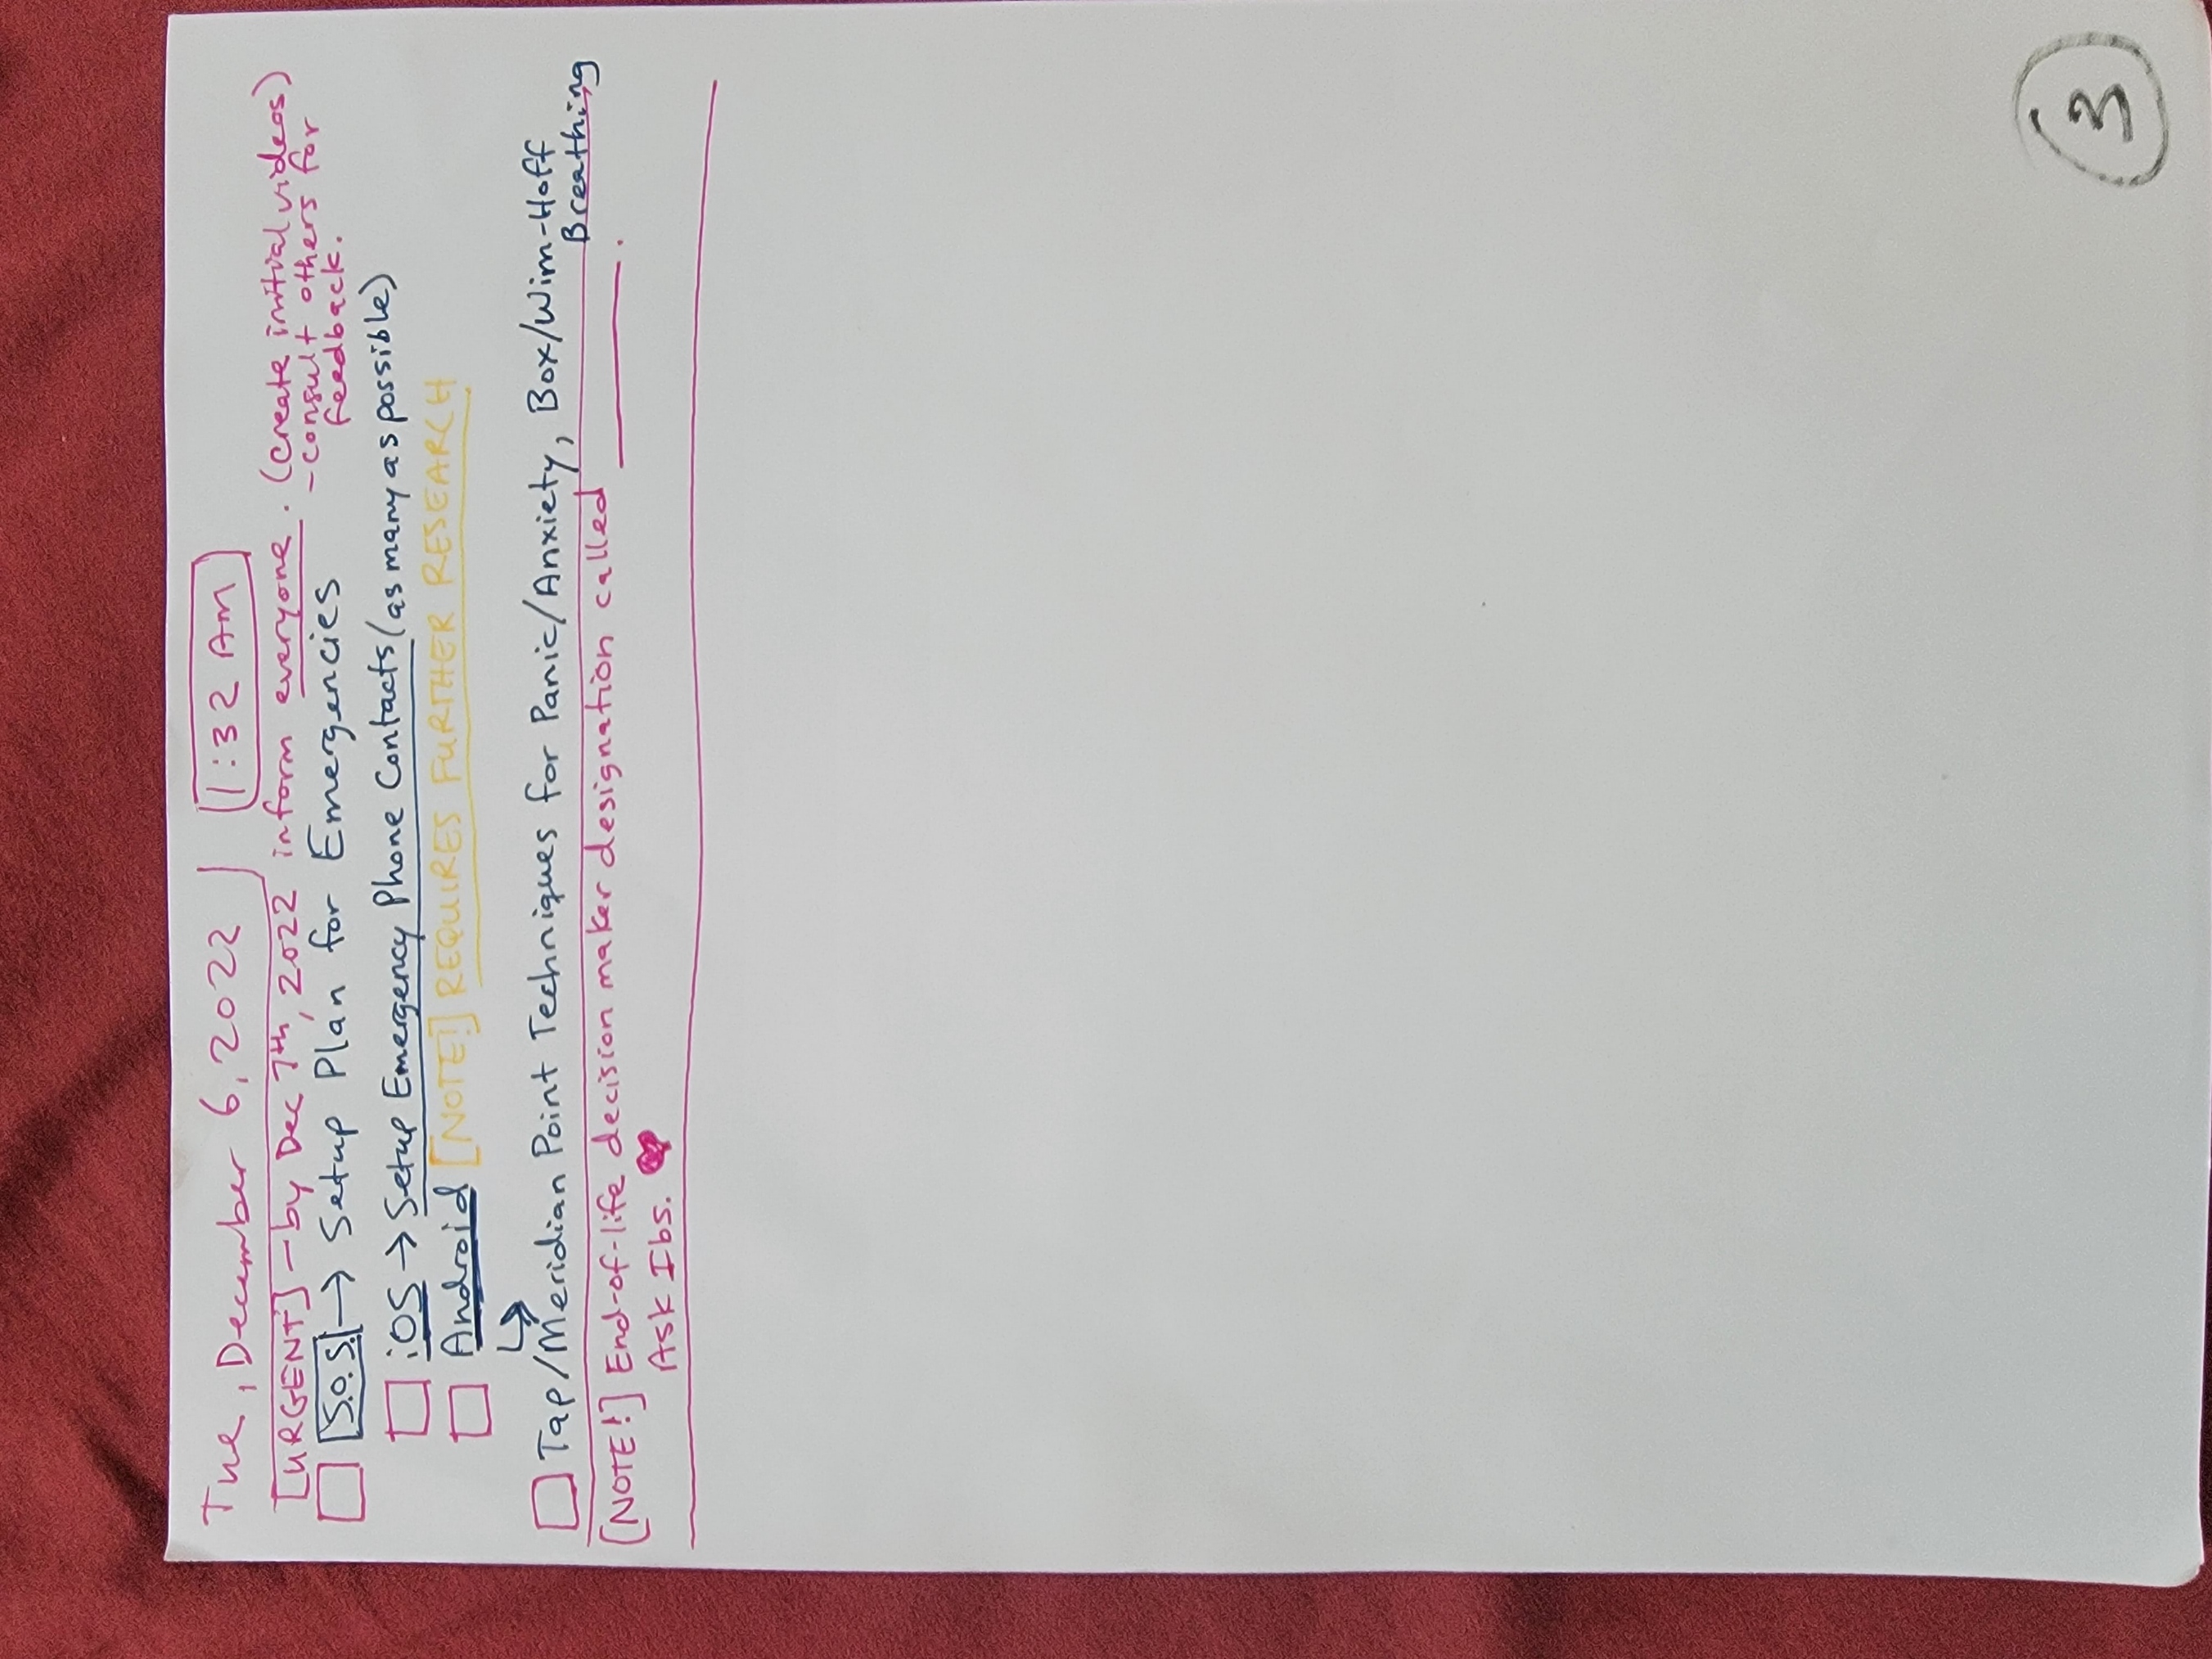 Tue, December 6, 2022 1:32 AM
[URGENT] - by Dec 7th, 2022 inform everyone. (create initial videos)
- consult others for
feedback.
S.O.S. → Setup Plan for Emergencies
iOS → Setup Emergency Phone Contacts (as many as possible)
Android [NOTE!] REQUIRES FURTHER RESEARCH
↳
Tap/Meridian Point Techniques for Panic/Anxiety, Box/Wim-Hoff
Breathing
[NOTE!] End-of-life decision maker designation called ________.
Ask Ibs. ♥
3